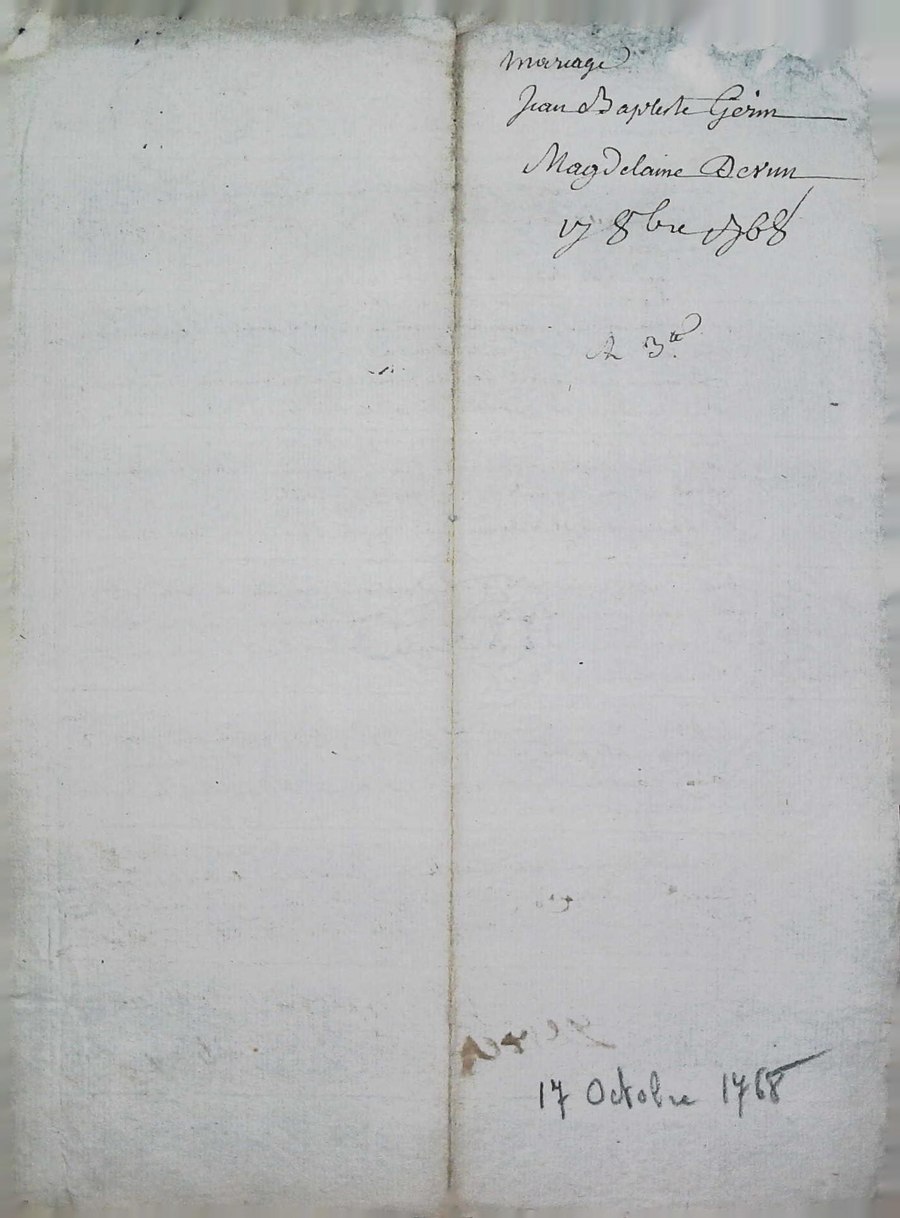 mariage
Jean Baptiste Gerin
Magdelaine Derun
17 8bre 1768
A 3tt
17 Octobre 1768